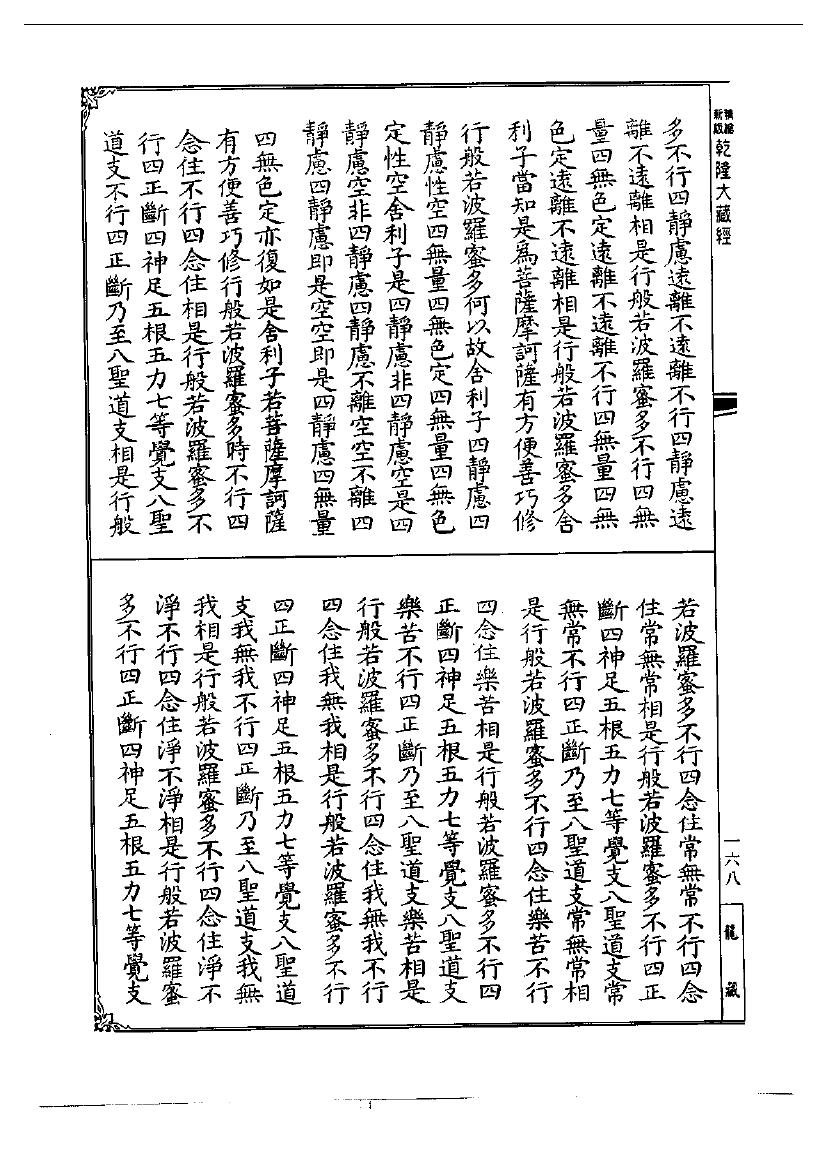 精縮
新版
乾隆大藏經
多不行四靜慮遠離不遠離不行四靜慮遠
離不遠離相是行般若波羅蜜多不行四無
量四無色定遠離不遠離不行四無量四無
色定遠離不遠離相是行般若波羅蜜多舍
利子當知是爲菩薩摩訶薩有方便善巧修
行般若波羅蜜多何以故舍利子四靜慮四
靜慮性空四無量四無色定四無量四無色
定性空舍利子是四靜慮非四靜慮空是四
靜慮空非四靜慮四靜慮不離空空不離四
靜慮四靜慮即是空空即是四靜慮四無量
四無色定亦復如是舍利子若菩薩摩訶薩
有方便善巧修行般若波羅蜜多時不行四
念住不行四念住相是行般若波羅蜜多不
行四正斷四神足五根五力七等覺支八聖
道支不行四正斷乃至八聖道支相是行般
若波羅蜜多不行四念住常無常不行四念
住常無常相是行般若波羅蜜多不行四正
斷四神足五根五力七等覺支八聖道支常
無常不行四正斷乃至八聖道支常無常相
是行般若波羅蜜多不行四念住樂苦不行
四念住樂苦相是行般若波羅蜜多不行四
正斷四神足五根五力七等覺支八聖道支
樂苦不行四正斷乃至八聖道支樂苦相是
行般若波羅蜜多不行四念住我無我不行
四念住我無我相是行般若波羅蜜多不行
四正斷四神足五根五力七等覺支八聖道
支我無我不行四正斷乃至八聖道支我無
我相是行般若波羅蜜多不行四念住淨不
淨不行四念住淨不淨相是行般若波羅蜜
多不行四正斷四神足五根五力七等覺支
一六八
龍藏